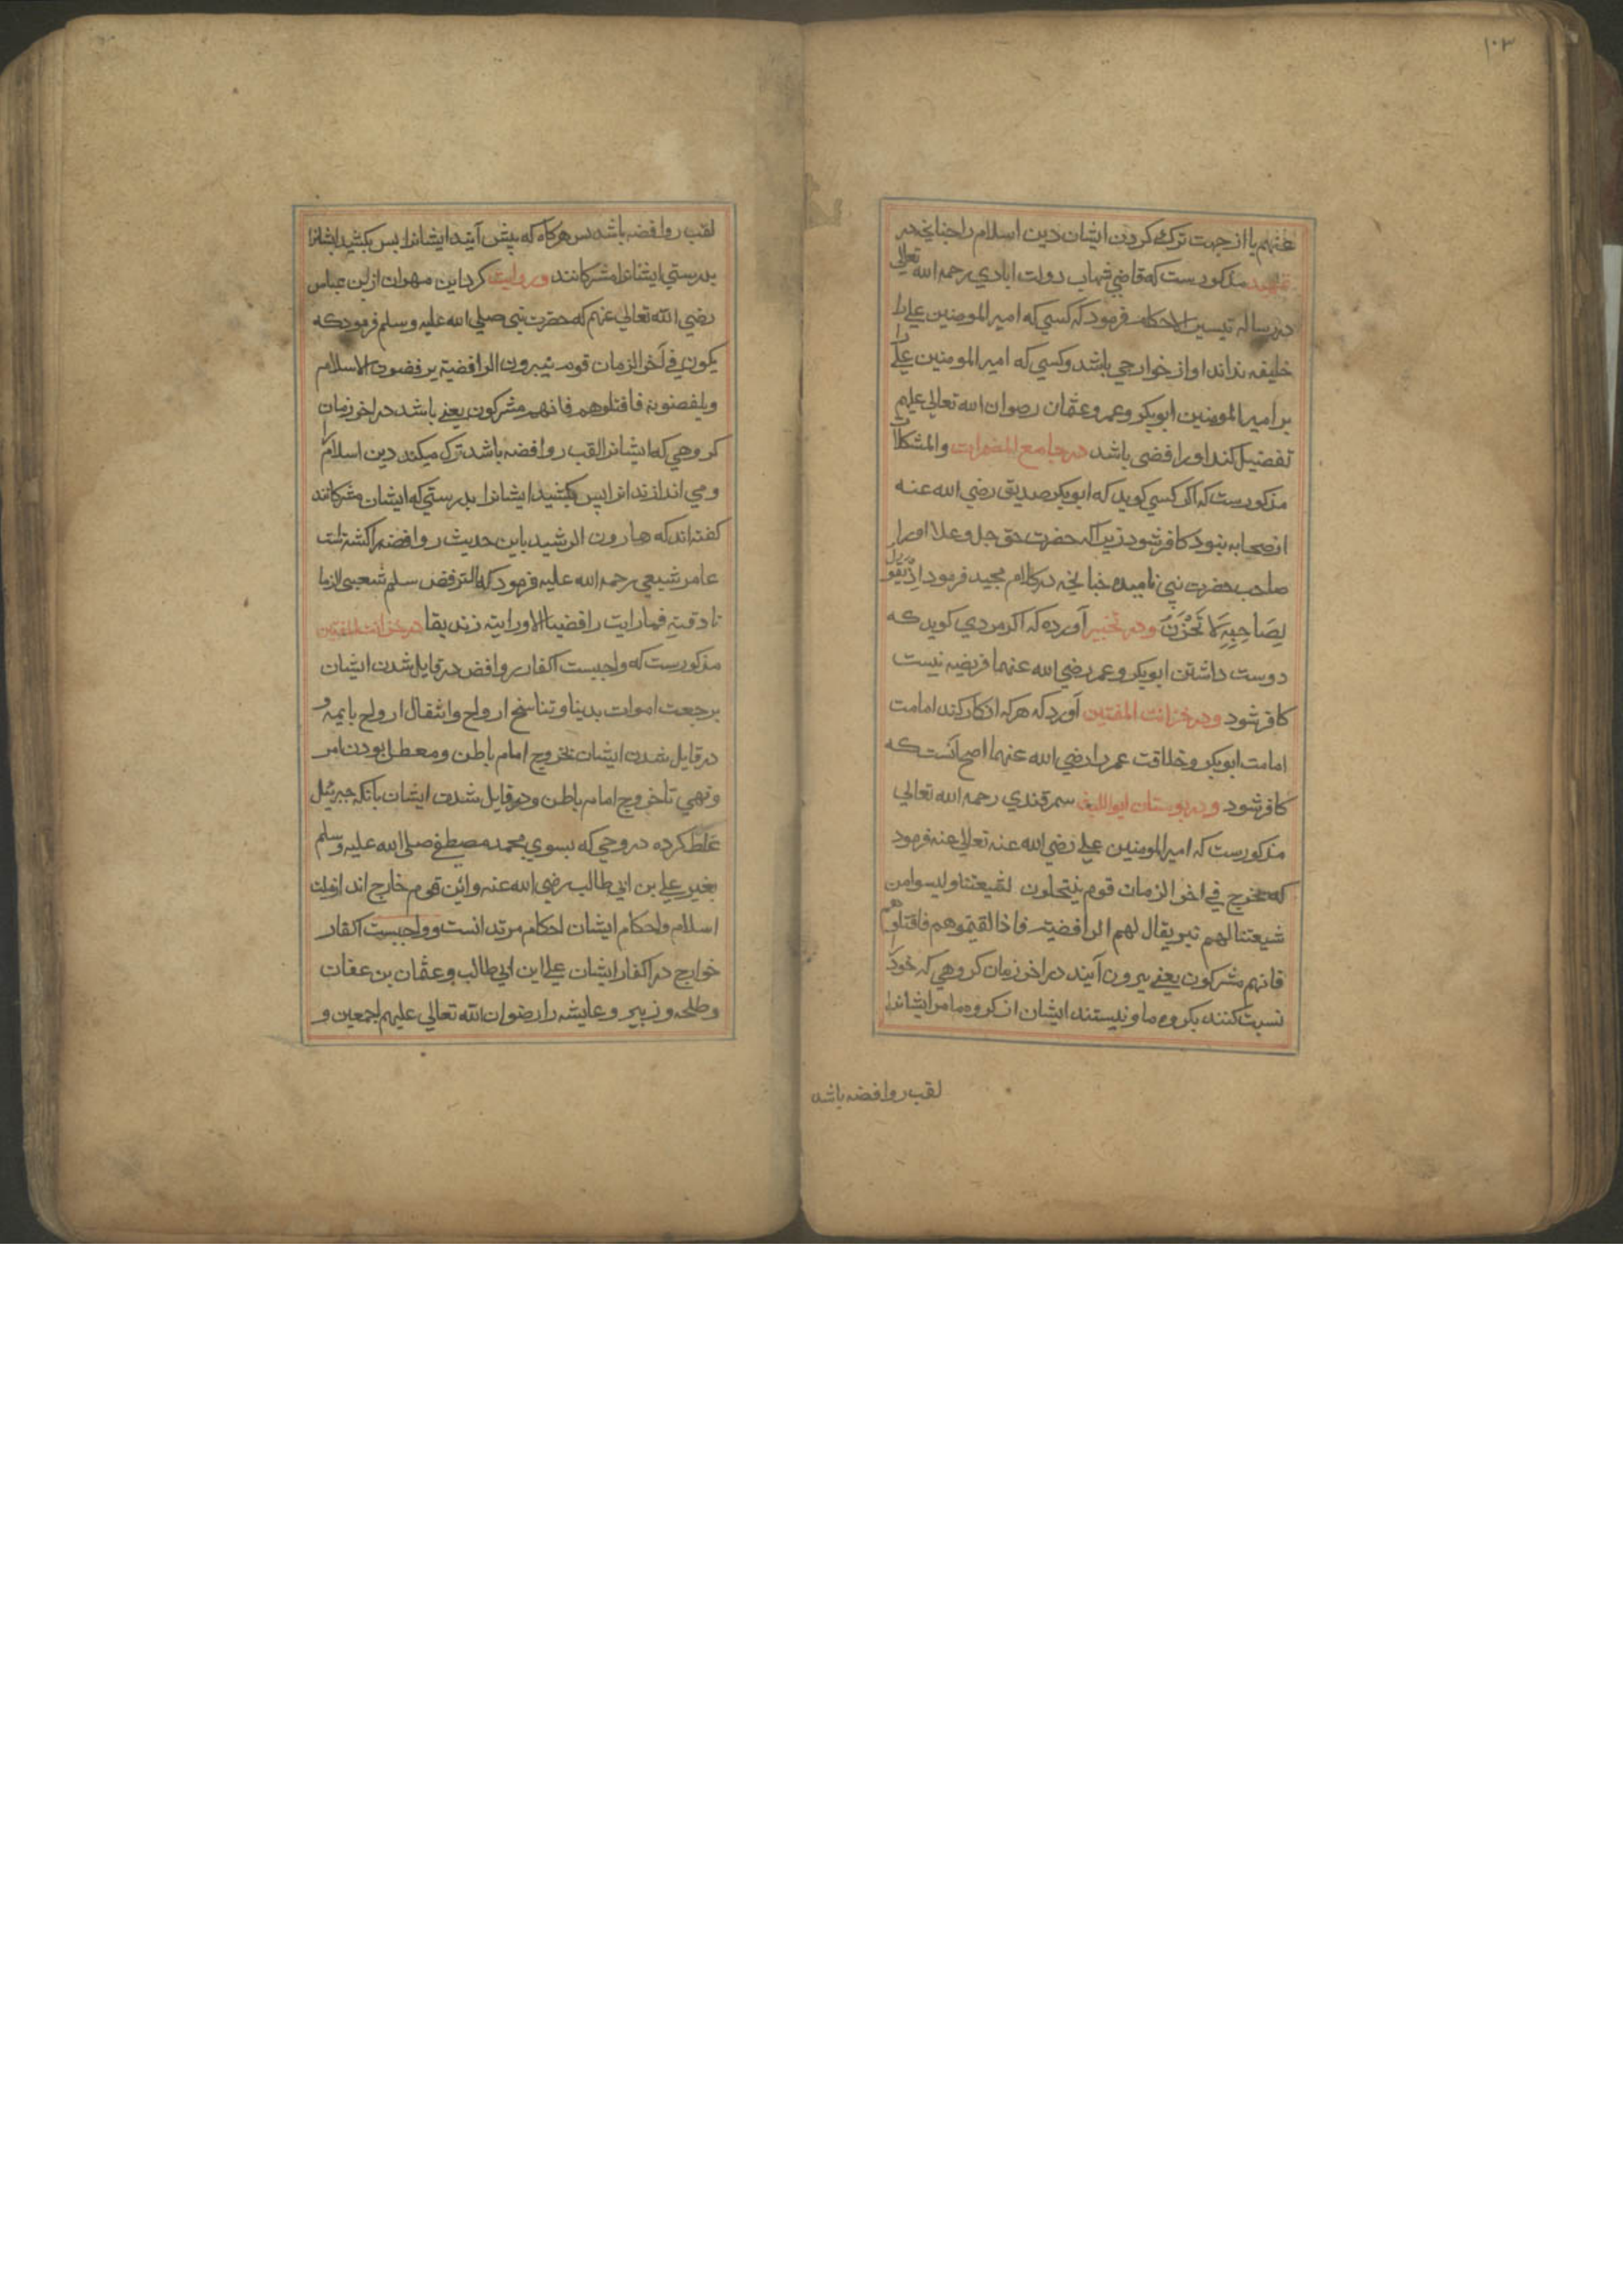 ۱۰۳
عنهم یا از جهت ترک کردن ایشان دین اسلام را چنانچه در
تمهید مذکورست که قاضی شهاب دولت ابادی رحمه الله تعالی
در رساله تیسیر الاحکام فرمود که کسی که امیر المومنین علی را
خلیفه نداند او از خوارجی باشد و کسی که امیر المومنین علی را
بر امیر المومنین ابوبکر و عمر و عثمان رضوان الله تعالی علیهم
تفضیل کند او رافضی باشد در جامع المضمرات والمشکلات
مذکورست که اگر کسی کوید که ابوبکر صدیق رضی الله عنه
از صحابه نبود کافر شود زیرا که حضرت حق جل و علا او را
صاحب حضرت نبی نامیده چنانچه در کلام مجید فرمود اذ یقول
لِصَاحِبِهِ لَا تَحْزَنْ و در تخییر آورده که اکر مردی کوید که
دوست داشتن ابوبکر و عمر رضی الله عنهما فریضه نیست
کافر شود و در خزانت المفتین آورد که هر که انکار کند امامت
امامت ابوبکر و خلافت عمر را رضی الله عنهما اصح آنست که
کافر شود و در بوستان ابو اللیث سمرقندی رحمه الله تعالی
مذکورست که امیر المومنین علی رضی الله عنه تعالی عنه فرمود
که یخرج فی اخر الزمان قوم ینتحلون لشیعتنا ولیسوا من
شیعتنا لهم نبر یقال لهم الرافضیة فاذا لقیتموهم فاقتلوهم
فانهم مشرکون یعنی بیرون آیند در اخر زمان کروهی که خود
نسبت کنند بکروه ما و نیستند ایشان از کروه ما مر ایشانرا
لقب روافضه باشد
لقب روافضه باشد پس هرکاه که پیش آیند ایشانرا پس بکشید ایشانرا
بدرستی ایشانرا مشرکانند و روایت کرد ابن مهران از ابن عباس
رضی الله تعالی عنهم که حضرت نبی صلی الله علیه وسلم فرمود که
یکون فی آخر الزمان قوم ینبرون الرافضیة یرفضون الاسلام
ویلفضونه فاقتلوهم فانهم مشرکون یعنی باشد در اخر زمان
کروهی که ایشانرا لقب روافضه باشد ترک میکند دین اسلام را
و می اندازند انرا پس بکشید ایشانرا بدرستی که ایشان مشرکانند
کفته اند که هارون الرشید باین حدیث روافضه را کشته است
عامر شبیعی رحمه الله علیه فرمود که الترفض سلم شعبی لازما
نادقیة فما رایت رافضیا الا و رایته زندیقا در خزانت المفتین
مذکورست که واجبست اکفار روافض در قایل شدن ایشان
برجعت اموات بدینا و تناسخ ارواح و انتقال ارواح بایمه و
در قایل شدن ایشان بخروج امام باطن و معطل بودن امر
و نهی تا خروج امام باطن و در قایل شدن ایشان بانکه جبرئیل
غلط کرده در وحی که بسوی محمد مصطفی صلی الله علیه وسلم
بغیر علی بن ابی طالب رضی الله عنه و این قوم خارج اند از ملت
اسلام و احکام ایشان احکام مرتدانست و واجبست اکفار
خوارج در اکفار ایشان علی ابن ابی طالب و عثمان بن عفان
و طلحه و زبیر و عایشه را رضوان الله تعالی علیهم اجمعین و